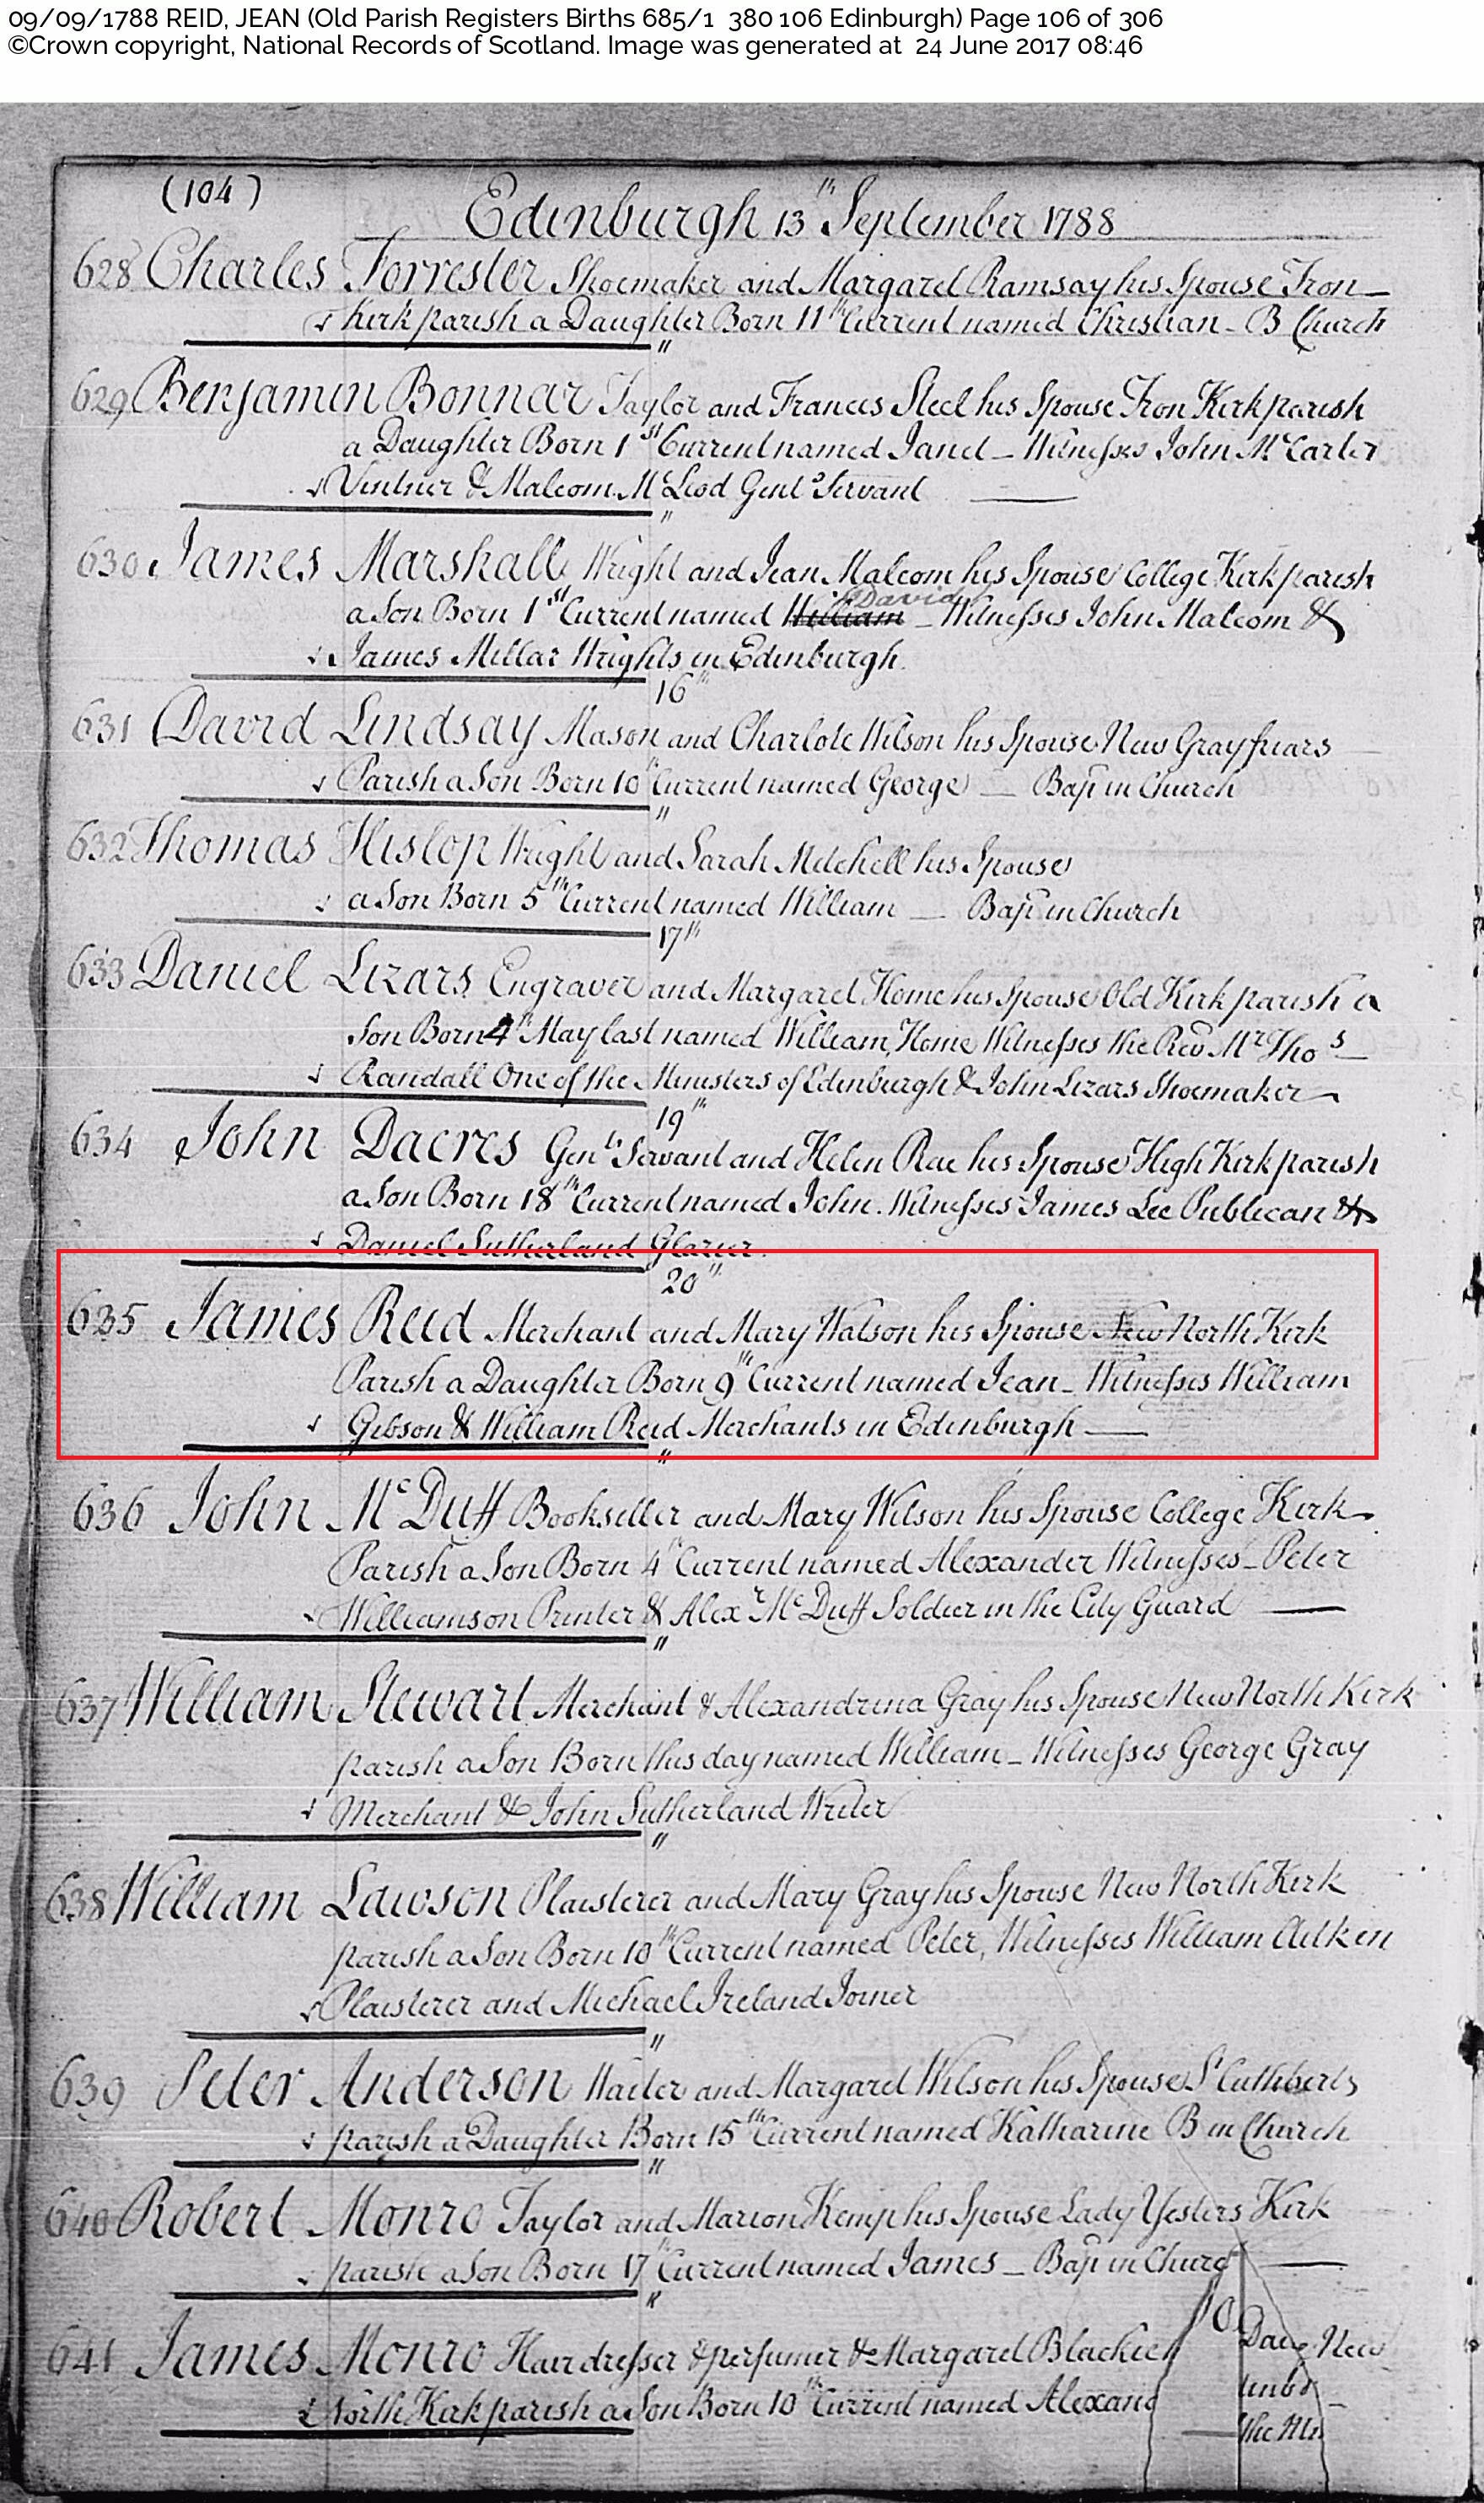 09/09/1788 REID, JEAN (Old Parish Registers Births 685/1 380 106 Edinburgh) Page 106 of 306
©Crown copyright, National Records of Scotland. Image was generated at 24 June 2017 08:46
(104)
Edinburgh 13th September 1788
628 Charles Forrester Shoemaker and Margaret Ramsay his Spouse Tron
Kirk parish a Daughter Born 11th Current named Christian - B Church
"
629 Benjamin Bonnar Taylor and Frances Steel his Spouse Tron Kirk parish
a Daughter Born 1st Current named Janet - Witnesses John McCarter
Vintner & Malcom McLeod Gent's Servant
"
630 James Marshall Wright and Jean Malcom his Spouse College Kirk parish
David
a Son Born 1st Current named William - Witnesses John Malcom &
James Millar Wrights in Edinburgh
16th
631 David Lindsay Mason and Charlote Wilson his Spouse New Grayfriars
Parish a Son Born 10th Current named George - Bapt in Church
"
632 Thomas Hislop Wright and Sarah Mitchell his Spouse
a Son Born 5th Current named William - Bapt in Church
17th
633 Daniel Lizars Engraver and Margaret Home his Spouse Old Kirk parish a
Son Born 4th May last named William Home Witnesses the Rev Mr Thos
Randall One of the Ministers of Edinburgh & John Lizars Shoemaker
19th
634 John Dacres Gents Servant and Helen Rae his Spouse High Kirk parish
a Son Born 18th Current named John. Witnesses James Lee Publican &
Daniel Sutherland Glazier.
20th
635 James Reid Merchant and Mary Watson his Spouse New North Kirk
Parish a Daughter Born 9th Current named Jean - Witnesses William
Gibson & William Reid Merchants in Edinburgh
"
636 John McDuff Bookseller and Mary Wilson his Spouse College Kirk
Parish a Son Born 4th Current named Alexander Witnesses - Peter
Williamson Printer & Alexr McDuff Soldier in the City Guard
"
637 William Stewart Merchant & Alexandrina Gray his Spouse New North Kirk
parish a Son Born this day named William - Witnesses George Gray
Merchant & John Sutherland Writer
"
638 William Lawson Plaisterer and Mary Gray his Spouse New North Kirk
parish a Son Born 10th Current named Peter, Witnesses William Aitken
Plaisterer and Michael Ireland Joiner
"
639 Peter Anderson Waiter and Margaret Wilson his Spouse St Cuthberts
parish a Daughter Born 15th Current named Katharine B in Church
"
640 Robert Monro Taylor and Marion Kemp his Spouse Lady Yesters Kirk
parish a Son Born 17th Current named James - Bap in Churc
"
641 James Monro Hairdresser & perfumer & Margaret Blackie New
North Kirk parish a Son Born 10th Current named Alexand